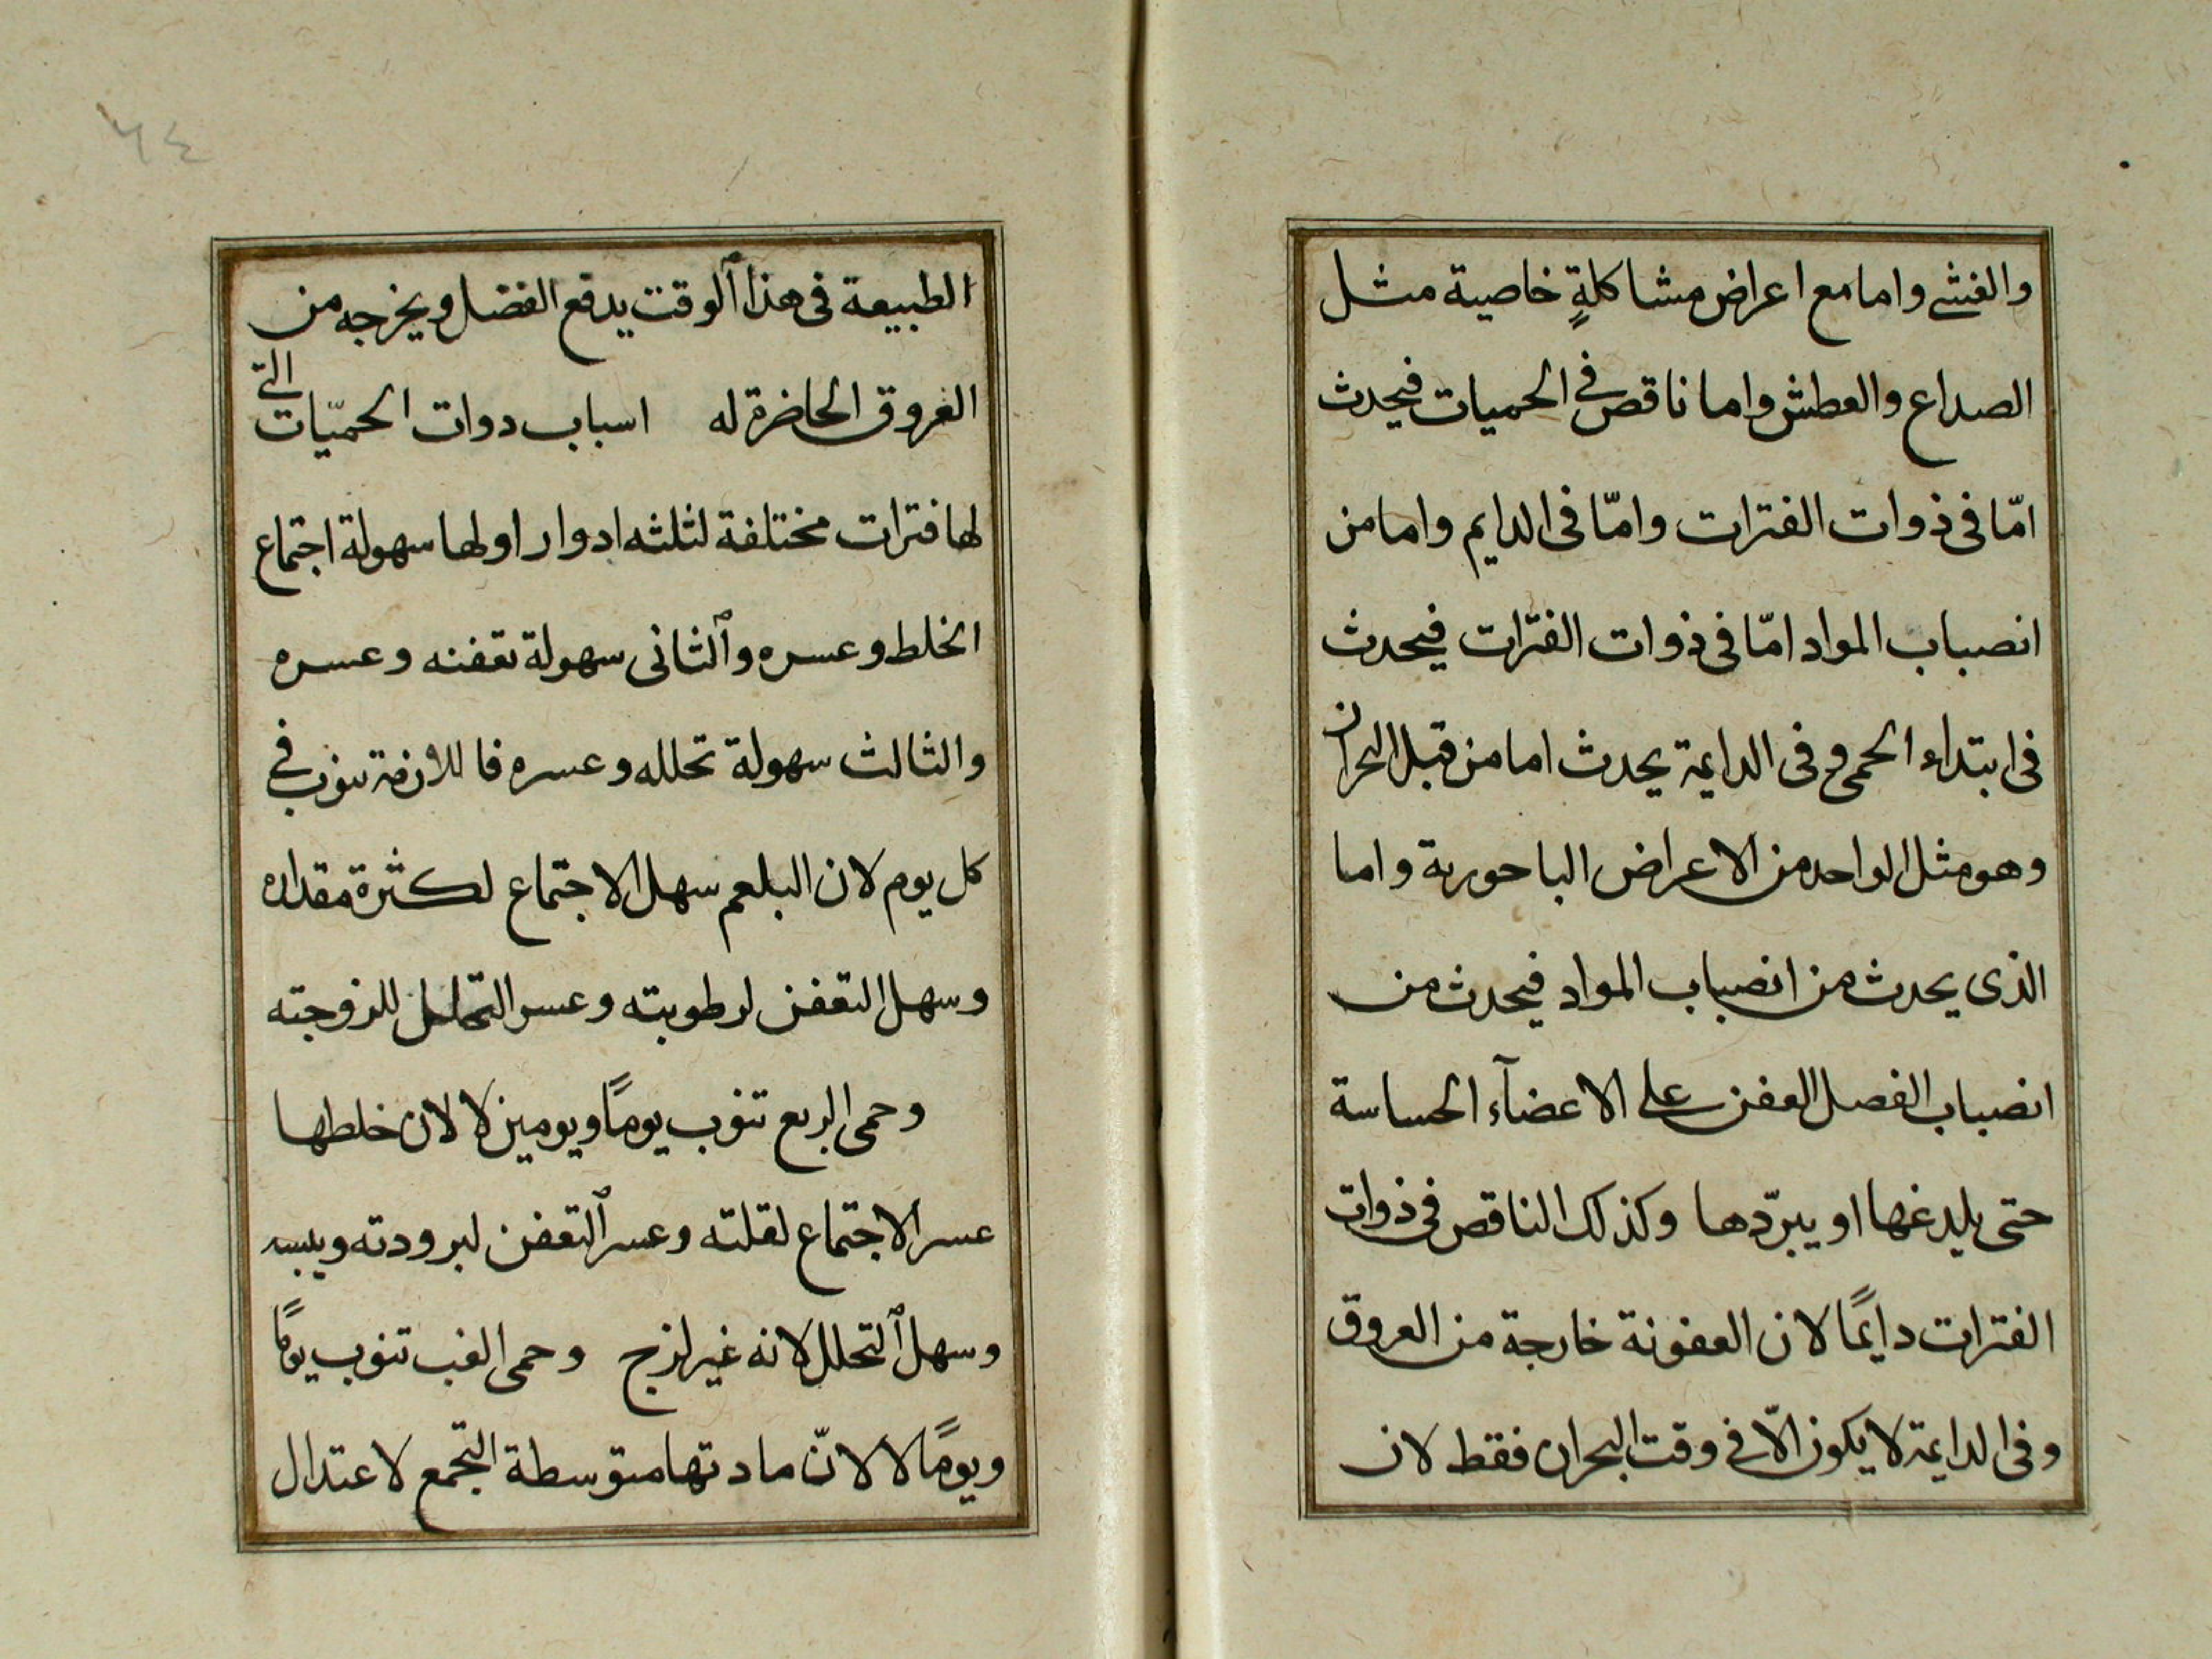 والغشى واما مع اعراض مشاكلةٍ خاصية مثل
الصداع والعطش واما ناقص في الحميات فيحدث
امّا فى ذوات الفترات وامّا فى الدايم واما من
انصباب المواد امّا فى ذوات الفترات فيحدث
فى ابتداء الحمى وفى الدايمة يحدث اما من قبل البحران
وهو مثل الواحد من الاعراض الباحورية واما
الذى يحدث من انصباب المواد فيحدث من
انصباب الفصل العفن على الاعضآء الحساسة
حتى يلدغها او يبرّدها وكذلك الناقص فى ذوات
الفترات دايمًا لان العفونة خارجة من العروق
وفى الدايمة لا يكون الّا فى وقت البحران فقط لان
٦٤
الطبيعة فى هذا الوقت يدفع الفضل ويخرجه من
العروق الحاضرة له اسباب دوات الحميّات التى
لها فترات مختلفة لثلثه ادوار اولها سهولة اجتماع
الخلط وعسره والثانى سهولة تعفنه وعسره
والثالث سهولة تحلله وعسره فاللازمة تنوب في
كل يوم لان البلعم سهل الاجتماع لكثرة مقداره
وسهل التعفن لرطوبته وعسر التحلل للزوجته
وحمى الربع تنوب يومًا ويومين لا لان خلطها
عسر الاجتماع لقلته وعسر التعفن لبرودته ويبسه
وسهل التحلل لانه غير لزج وحمى الغب تنوب يومًا
ويومًا لا لانّ مادتها متوسطة التجمع لاعتدال